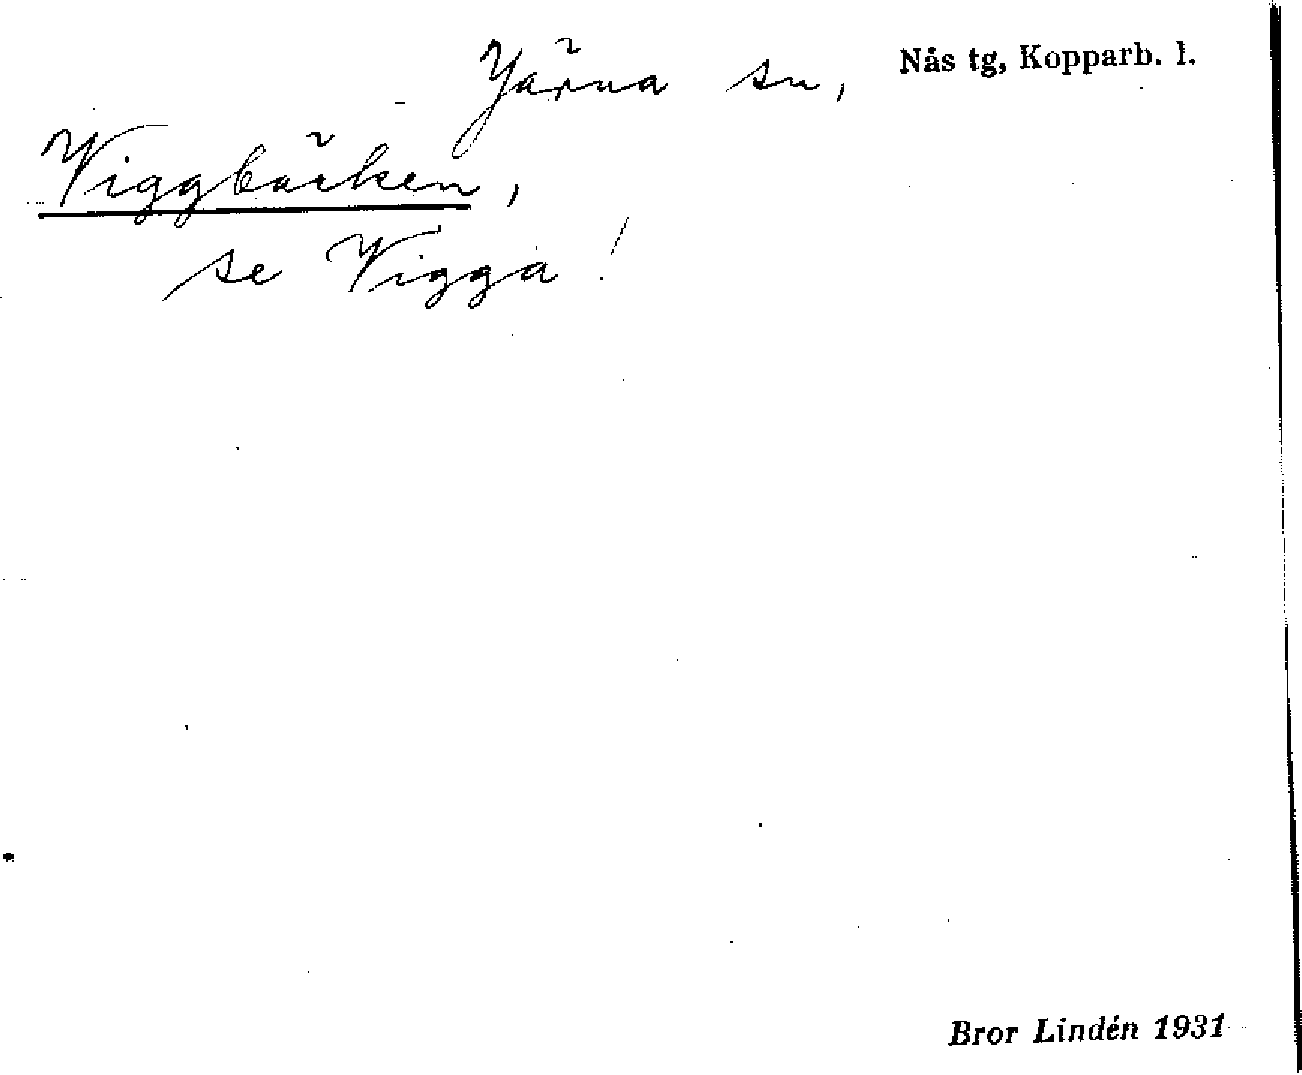 Järna sn, Nås tg, Kopparb. l.
Viggbäcken,
se Vigga !
Bror Lindén 1931